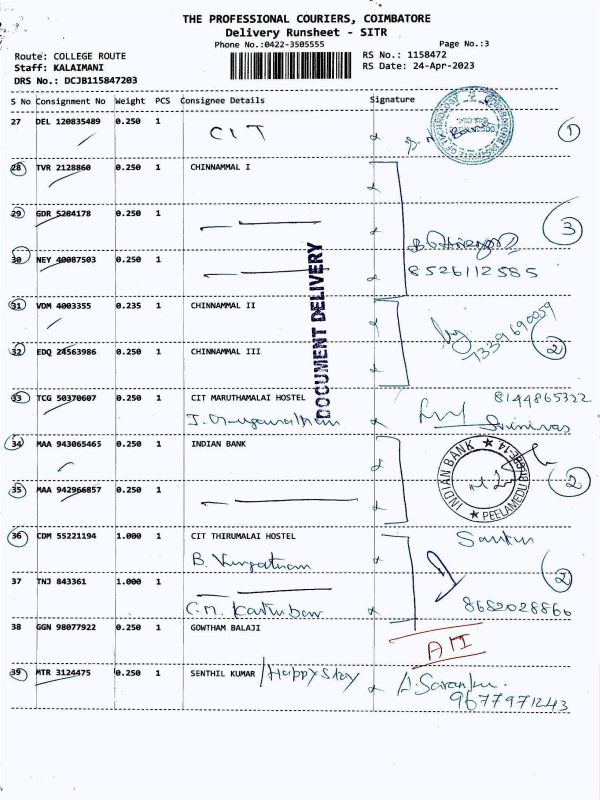 THE PROFESSIONAL COURIERS, COIMBATORE
Delivery Runsheet - SITR
Phone No.:0422-3505555
Page No.:3
Route: COLLEGE ROUTE
RS No.: 1158472
Staff: KALAIMANI
RS Date: 24-Apr-2023
DRS No.: DCJB115847203
S No Consignment No Weight PCS Consignee Details Signature
27 DEL 120835489 0.250 1 CIT
1
28 TVR 2128860 0.250 1 CHINNAMMAL I
29 GDR 5284178 0.250 1
3
30 NEY 40087503 0.250 1
8526112585
DOCUMENT DELIVERY
31 VDM 4003355 0.235 1 CHINNAMMAL II
7339690059
2
32 EDQ 24563986 0.250 1 CHINNAMMAL III
33 TCG 50370607 0.250 1 CIT MARUTHAMALAI HOSTEL 8144865322
Srinivas
34 MAA 943065465 0.250 1 INDIAN BANK
INDIAN BANK
PEELAMEDU
2
35 MAA 942966857 0.250 1
36 CDM 55221194 1.000 1 CIT THIRUMALAI HOSTEL
2
37 TNJ 843361 1.000 1
8682028866
38 GGN 98077922 0.250 1 GOWTHAM BALAJI
39 MTR 3124475 0.250 1 SENTHIL KUMAR /Happy Stay
9677971243